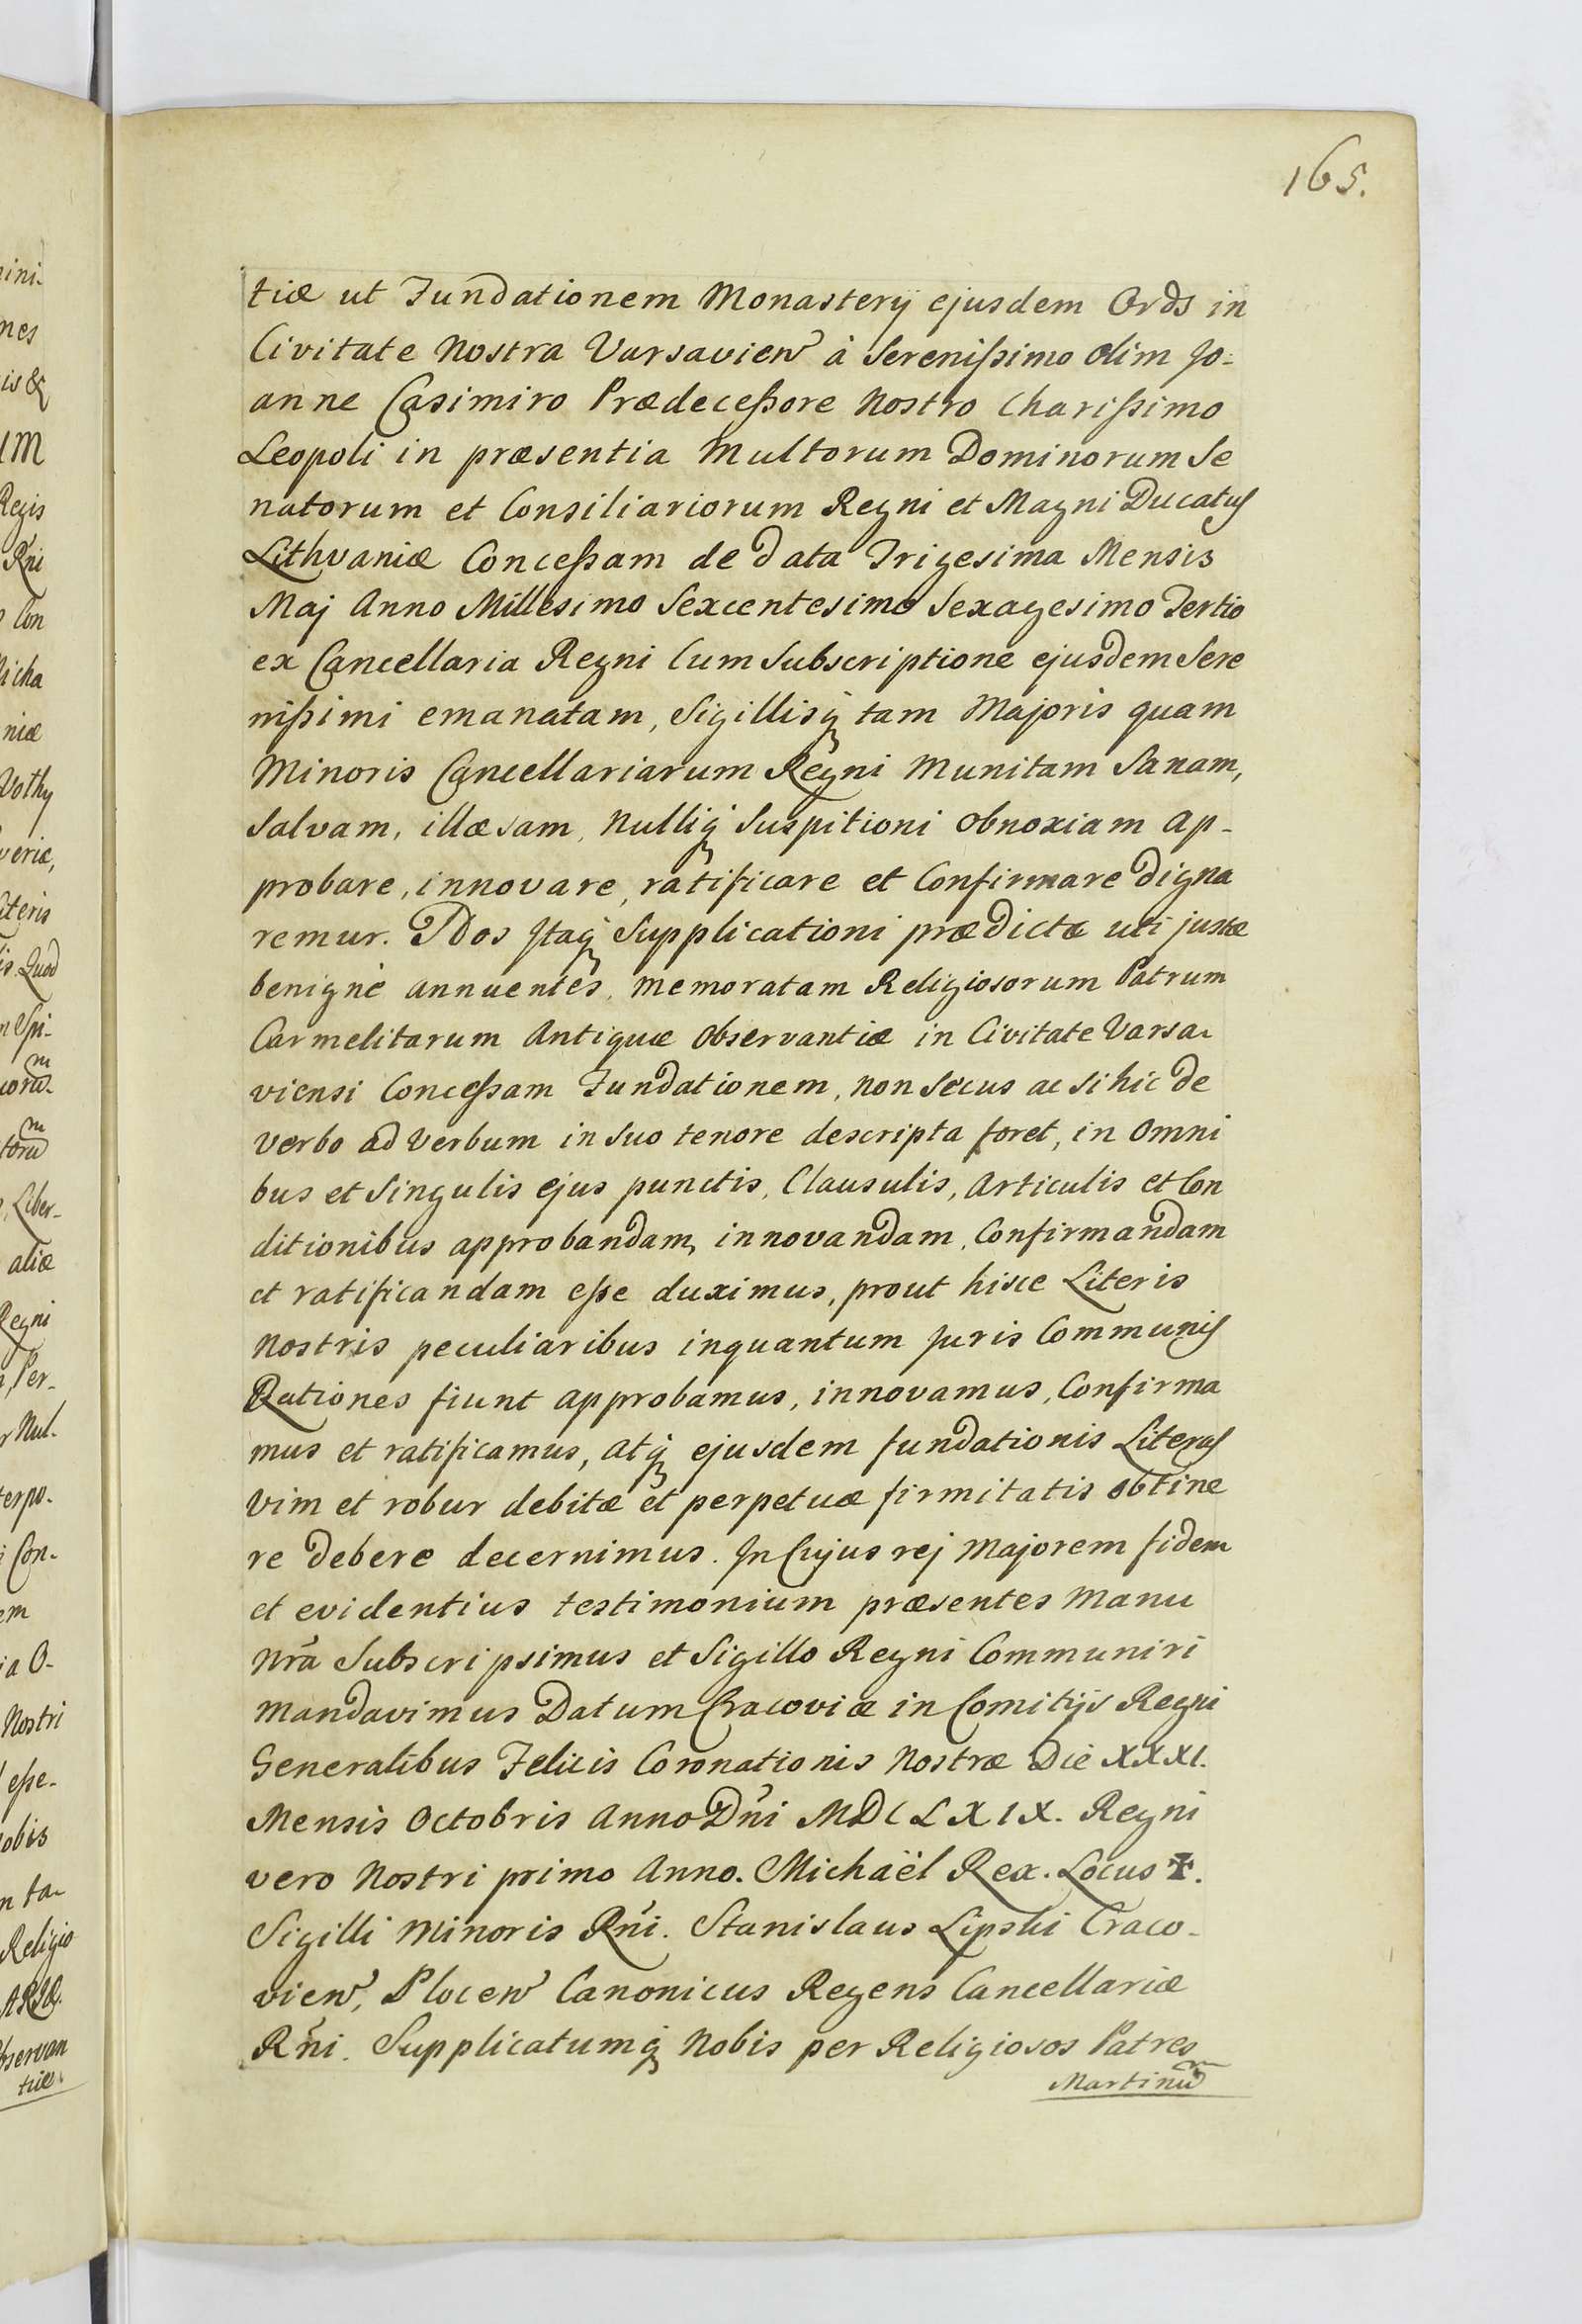 165.
tiæ ut Fundationem Monasterÿ ejusdem Ords in
Civitate Nostra Varsavien̄ à Serenißimo olim Jo-
anne Casimiro Prædeceßore Nostro Charißimo
Leopoli in præsentia Multorum Dominorum Se
natorum et Consiliariorum Regni et Magni Ducatus
Lithvaniæ Conceßam de data Trigesima Mensis
Maj Anno Millesimo Sexcentesimo Sexagesimo Tertio
ex Cancellaria Regni Cum Subscriptione ejusdem Sere
nißimi emanatam, Sigillisq́ tam Majoris quam
Minoris Cancellariarum Regni Munitam Sanam,
Salvam, illæsam, Nulliq́ Suspitioni obnoxiam ap-
probare, innovare, ratificare et Confirmare digna
remur. Nos Itaq́ Supplicationi prædictæ uti justæ
benignè annuentes, Memoratam Religiosorum Patrum
Carmelitarum Antiquæ Observantiæ in Civitate Varsa-
viensi Conceßam Fundationem, Non Secus ac Si hic de
Verbo ad Verbum in Suo tenore descripta foret, in Omni
bus et Singulis ejus punctis, Clausulis, Articulis et Con
ditionibus approbandam, innovandam, Confirmandam
et ratificandam eße duximus, prout hisce Literis
Nostris peculiaribus inquantum Juris Communis
Rationes fiunt approbamus, innovamus, Confirma
mus et ratificamus, atq́ ejusdem fundationis Literas
Vim et robur debitæ et perpetuæ firmitatis obtine
re debere decernimus. In Cujus rej Majorem fidem
et evidentius testimonium præsentes Manu
Nr̃a Subscripsimus et Sigillo Regni Communiri
Mandavimus Datum Cracoviæ in Comitijs Regni
Generalibus Felicis Coronationis Nostræ Die XXXI.
Mensis Octobris Anno Dñi MDCLXIX. Regni
vero Nostri primo Anno. Michaël Rex. Locus ✝.
Sigilli Minoris Rñi. Stanislaus Lipski Craco-
vien̄, Plocen̄ Canonicus Regens Cancellariæ
Rñi. Supplicatumq́ Nobis per Religiosos Patres
Martinũ